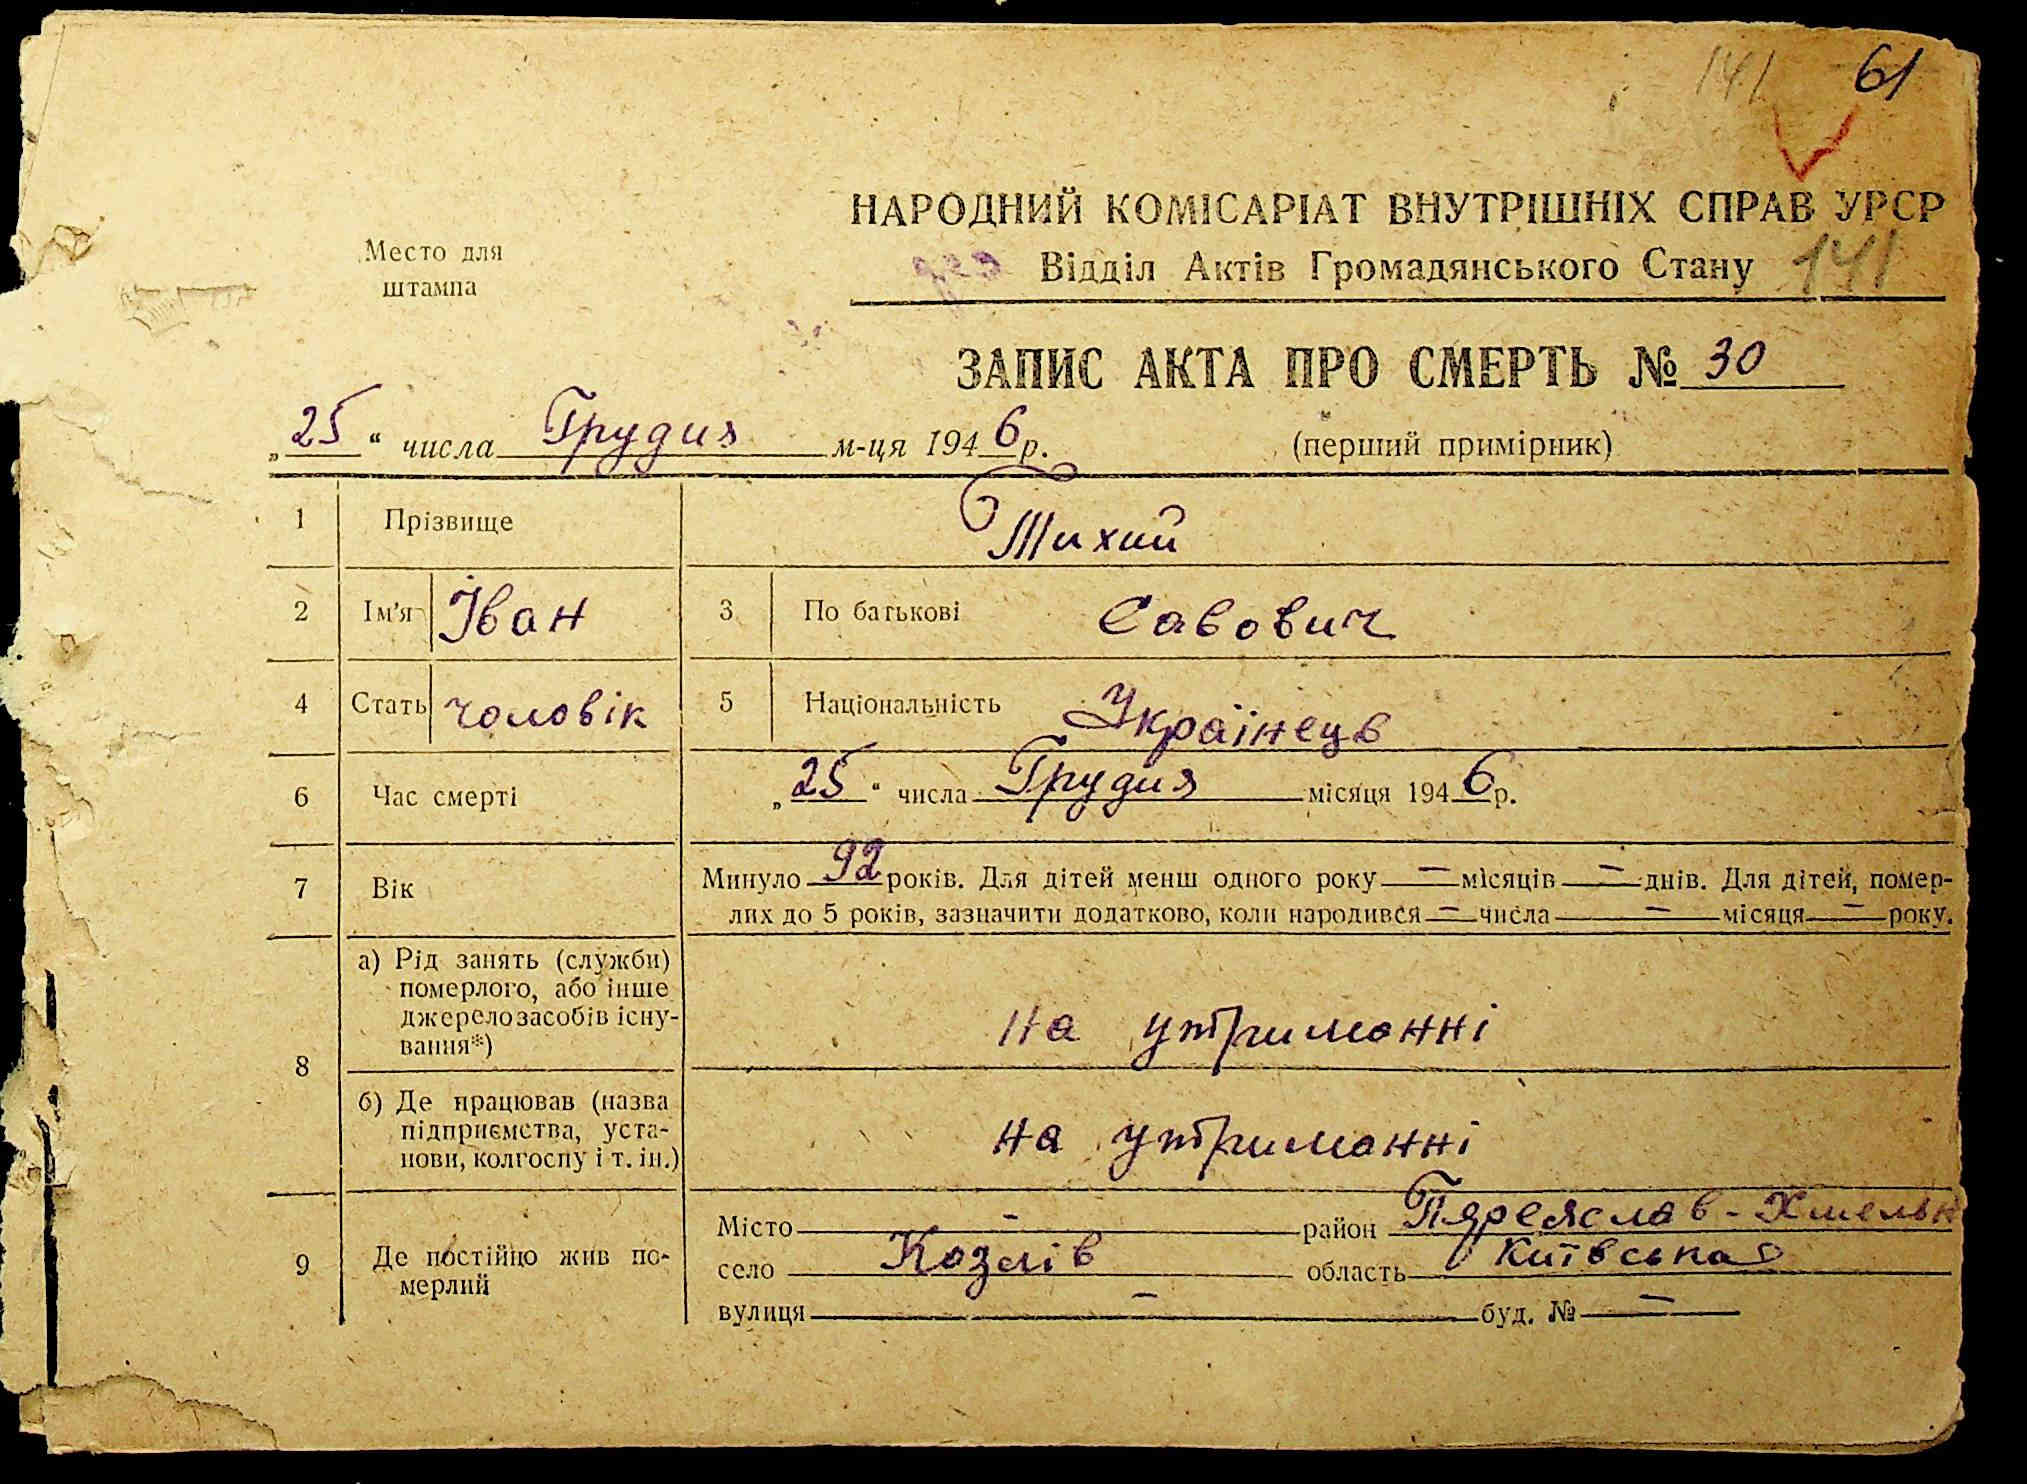 141 61
НАРОДНИЙ КОМІСАРІАТ ВНУТРІШНІХ СПРАВ УРСР
Место для
штампа
Відділ Актів Громадянського Стану 141
ЗАПИС АКТА ПРО СМЕРТЬ № 30
„25“ числа Грудия м-ця 1946 р.
(перший примірник)
1 Прізвище Тихий
2 Ім'я Іван 3 По батькові Савович
4 Стать чоловік 5 Національність Українець
6 Час смерті „25“ числа Грудия місяця 1946 р.
7 Вік Минуло 92 років. Для дітей менш одного року — місяців — днів. Для дітей, помер-
лих до 5 років, зазначити додатково, коли народився — числа — місяця — року.
8 а) Рід занять (служби)
померлого, або інше
джерело засобів існу-
вання*) на утриманні
б) Де працював (назва
підприємства, уста-
нови, колгоспу і т. ін.) на утриманні
9 Де постійно жив по-
мерлий
Місто — район Пяреяслав-Хмельн
село Козлів область Київська
вулиця — буд. № —